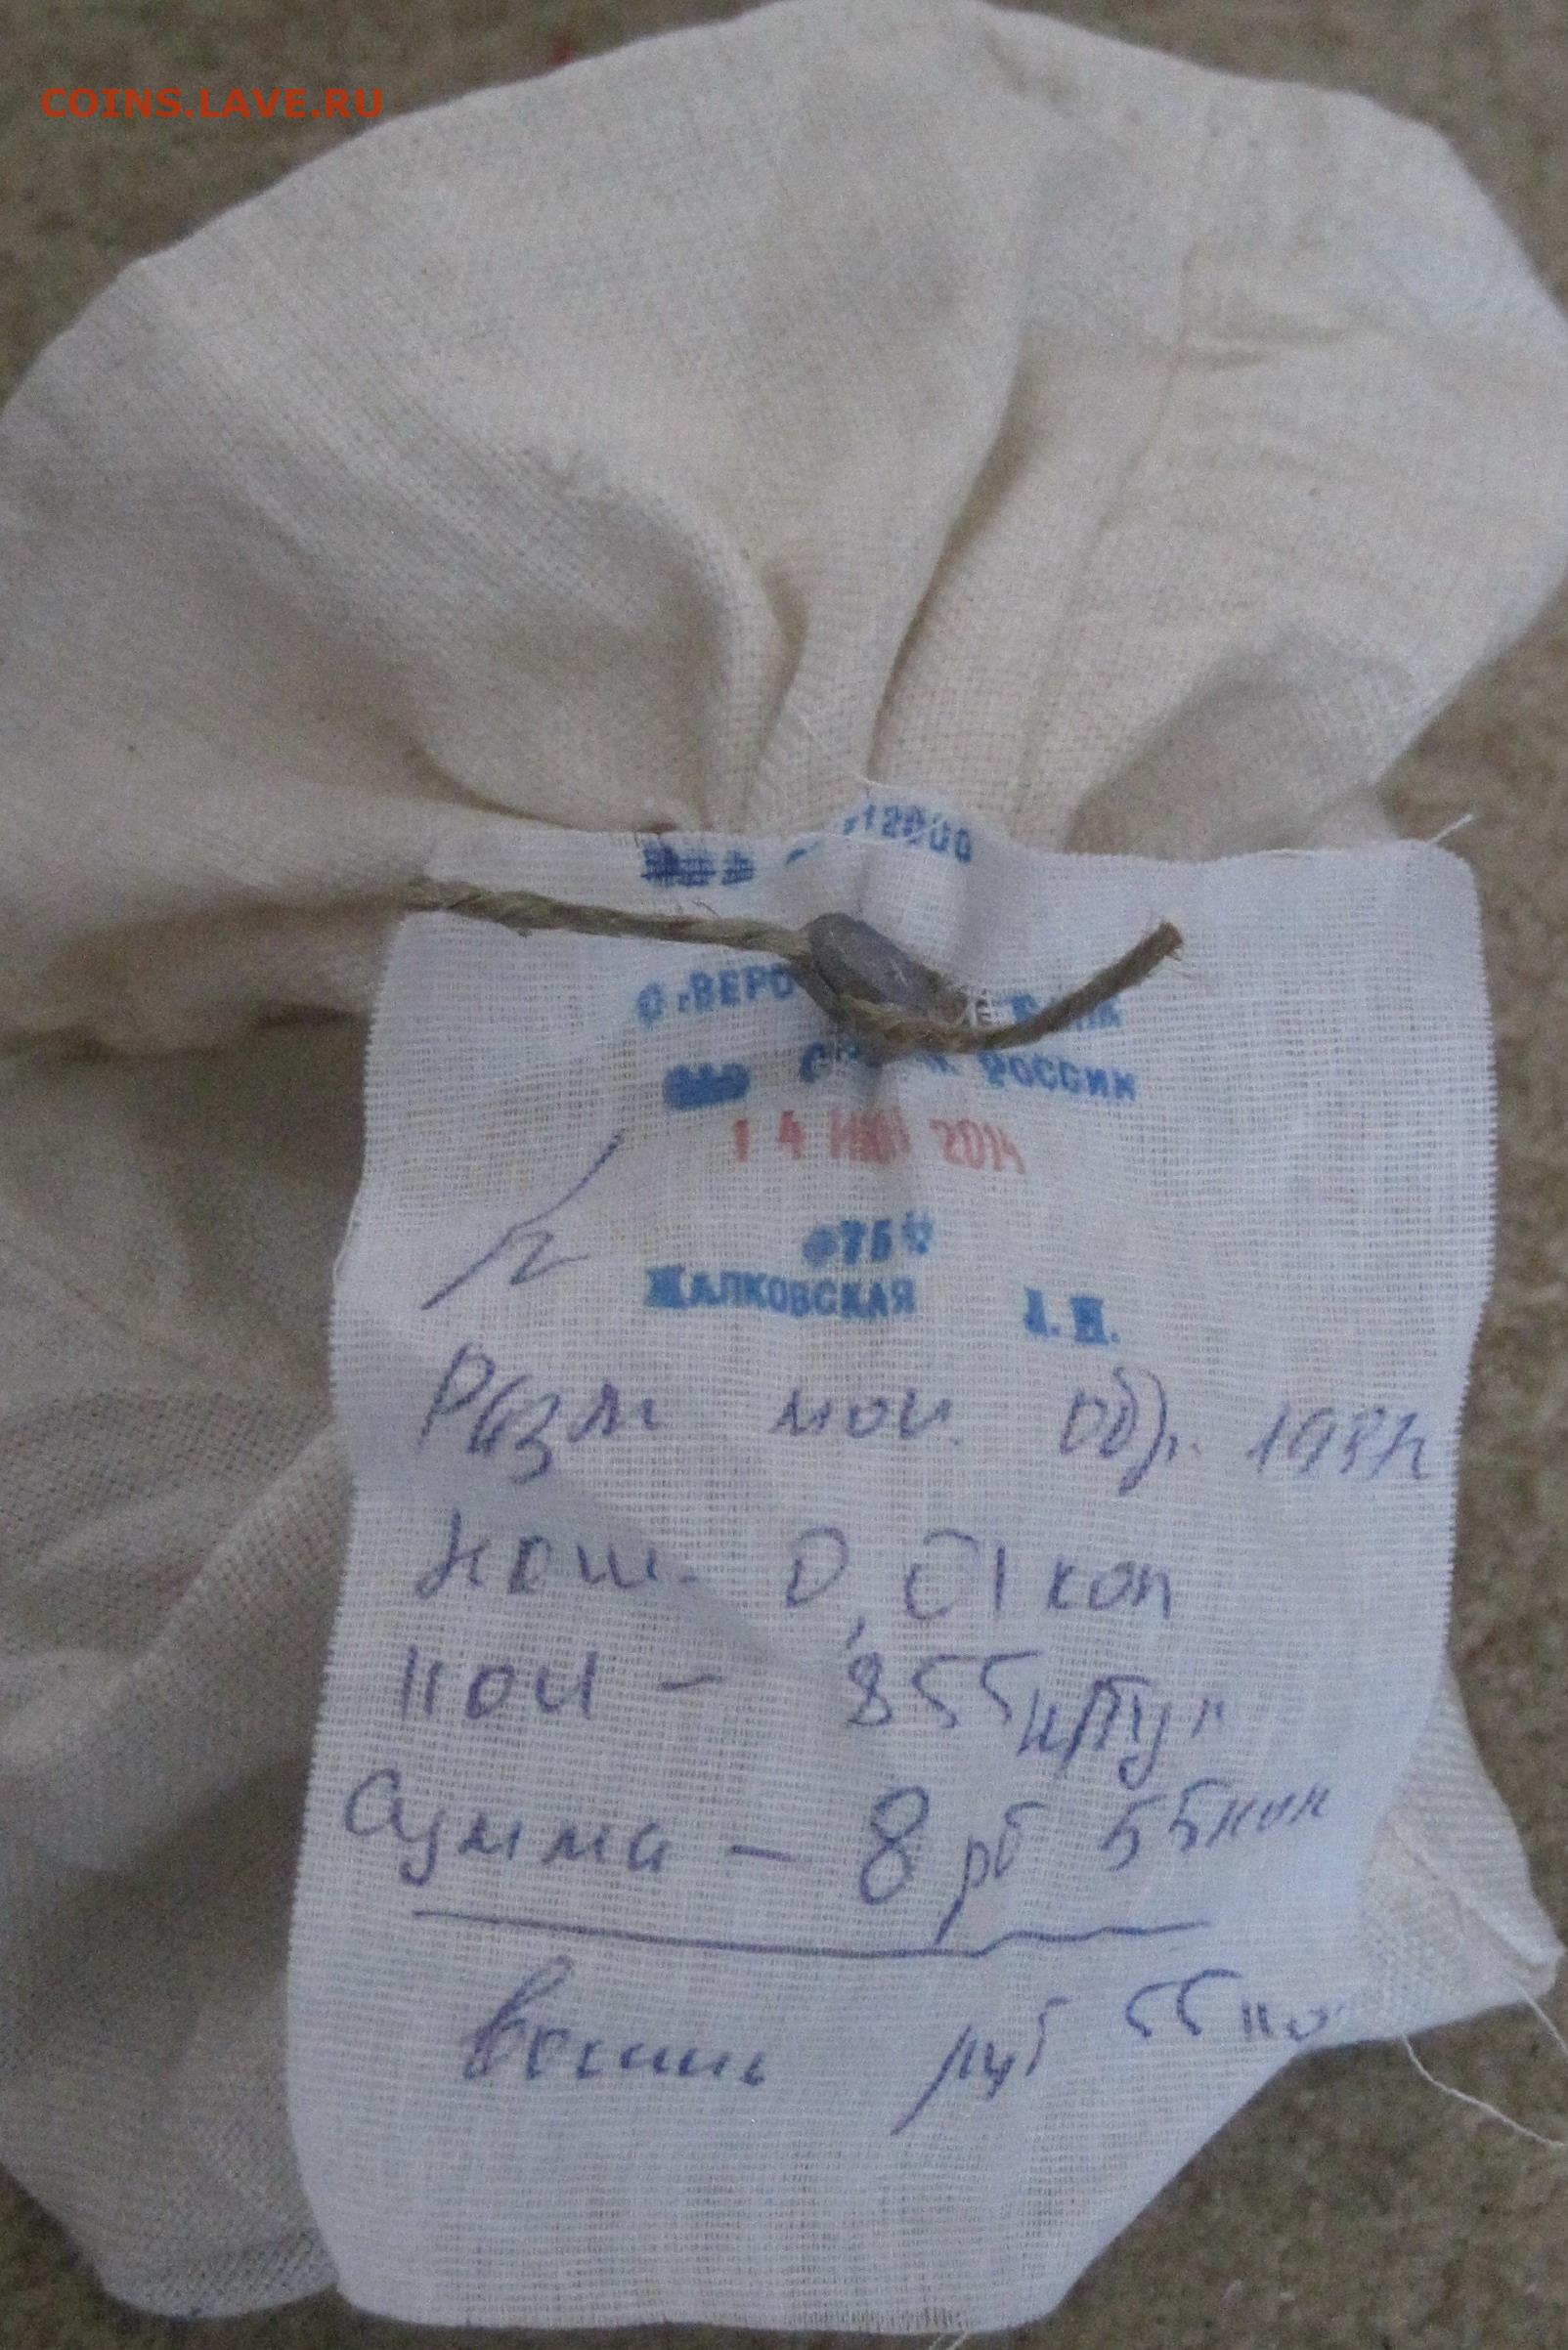 COINS.LAVE.RU
12000
РОССИИ
1 4 2014
ЖАЛКОВСКАЯ
Разм мон. Обр. 1997г
Ном. 0,01 коп
кол - 855 штук
Сумма - 8 рб 55 коп
Восемь руб 55 ко